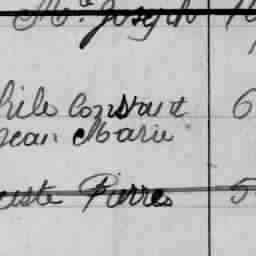 Mª Joseph
hile Constant 6
Jean Marie
uste Pierre 5